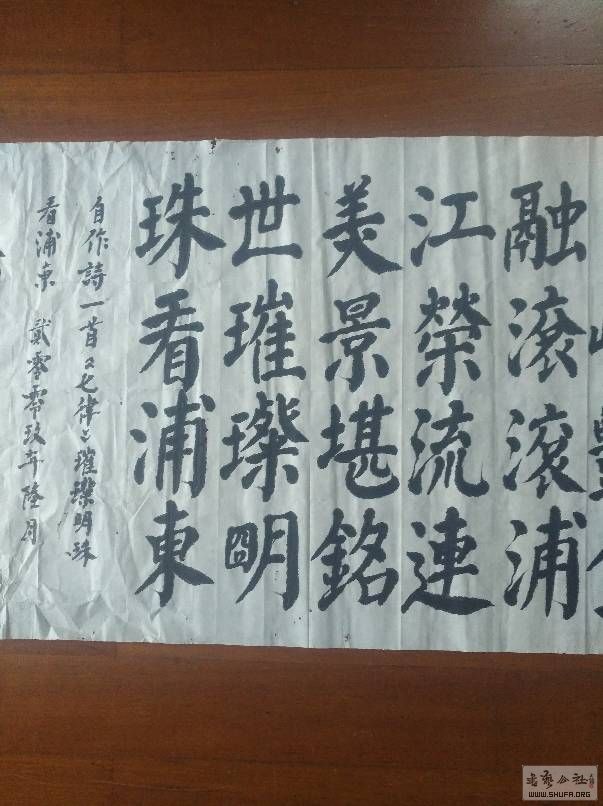 融滾滾浦
江榮流連
美景堪銘
世璀璨明
珠看浦東
自作詩一首
七律
璀璨明珠
看浦東 貳零零玖年陸月
WWW.SHUFA.ORG